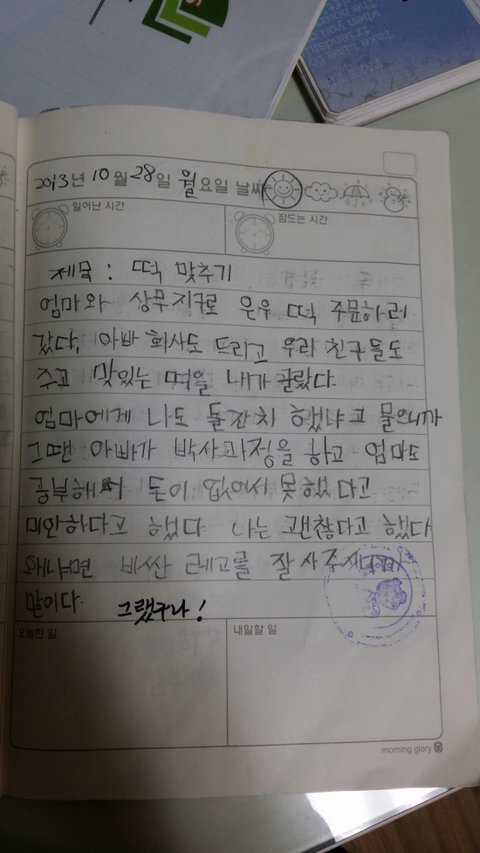 2013년 10월 28일 월요일 날씨
일어난 시간
잠드는 시간
제목 : 떡 맞추기
엄마와 상무지구로 은우 떡 주문하러
갔다, 아빠 회사도 드리고 우리 친구들도
주고 맛있는 떡을 내가 골랐다.
엄마에게 나도 돌잔치 했냐고 물으니까
그땐 아빠가 박사과정을 하고 엄마도
공부해서 돈이 없어서 못했다고
미안하다고 했다 나는 괜찮다고 했다
왜냐면 비싼 레고를 잘 사주
말이다. 그랬구나!
오늘한 일
내일할 일
morning glory